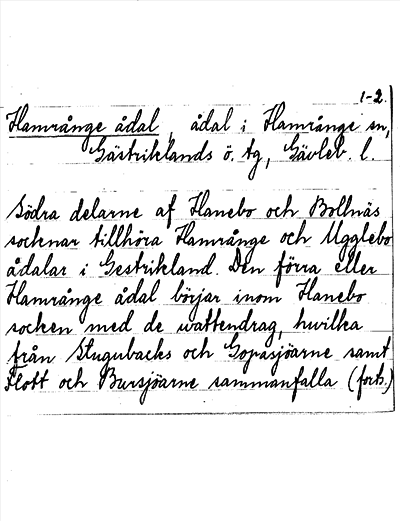 1-2.
Hamrånge ådal, ådal i Hamrånge sn,
Gästriklands ö. tg, Gävleb. l.
Södra delarne af Hanebo och Bollnäs
socknar tillhöra Hamrånge och Ugglebo
ådalar i Gestrikland. Den förra eller
Hamrånge ådal börjar inom Hanebo
socken med de wattendrag, hvilka
från Stugubacks och Gopasjöarne samt
Flott och Bursjöarne sammanfalla (forts.)